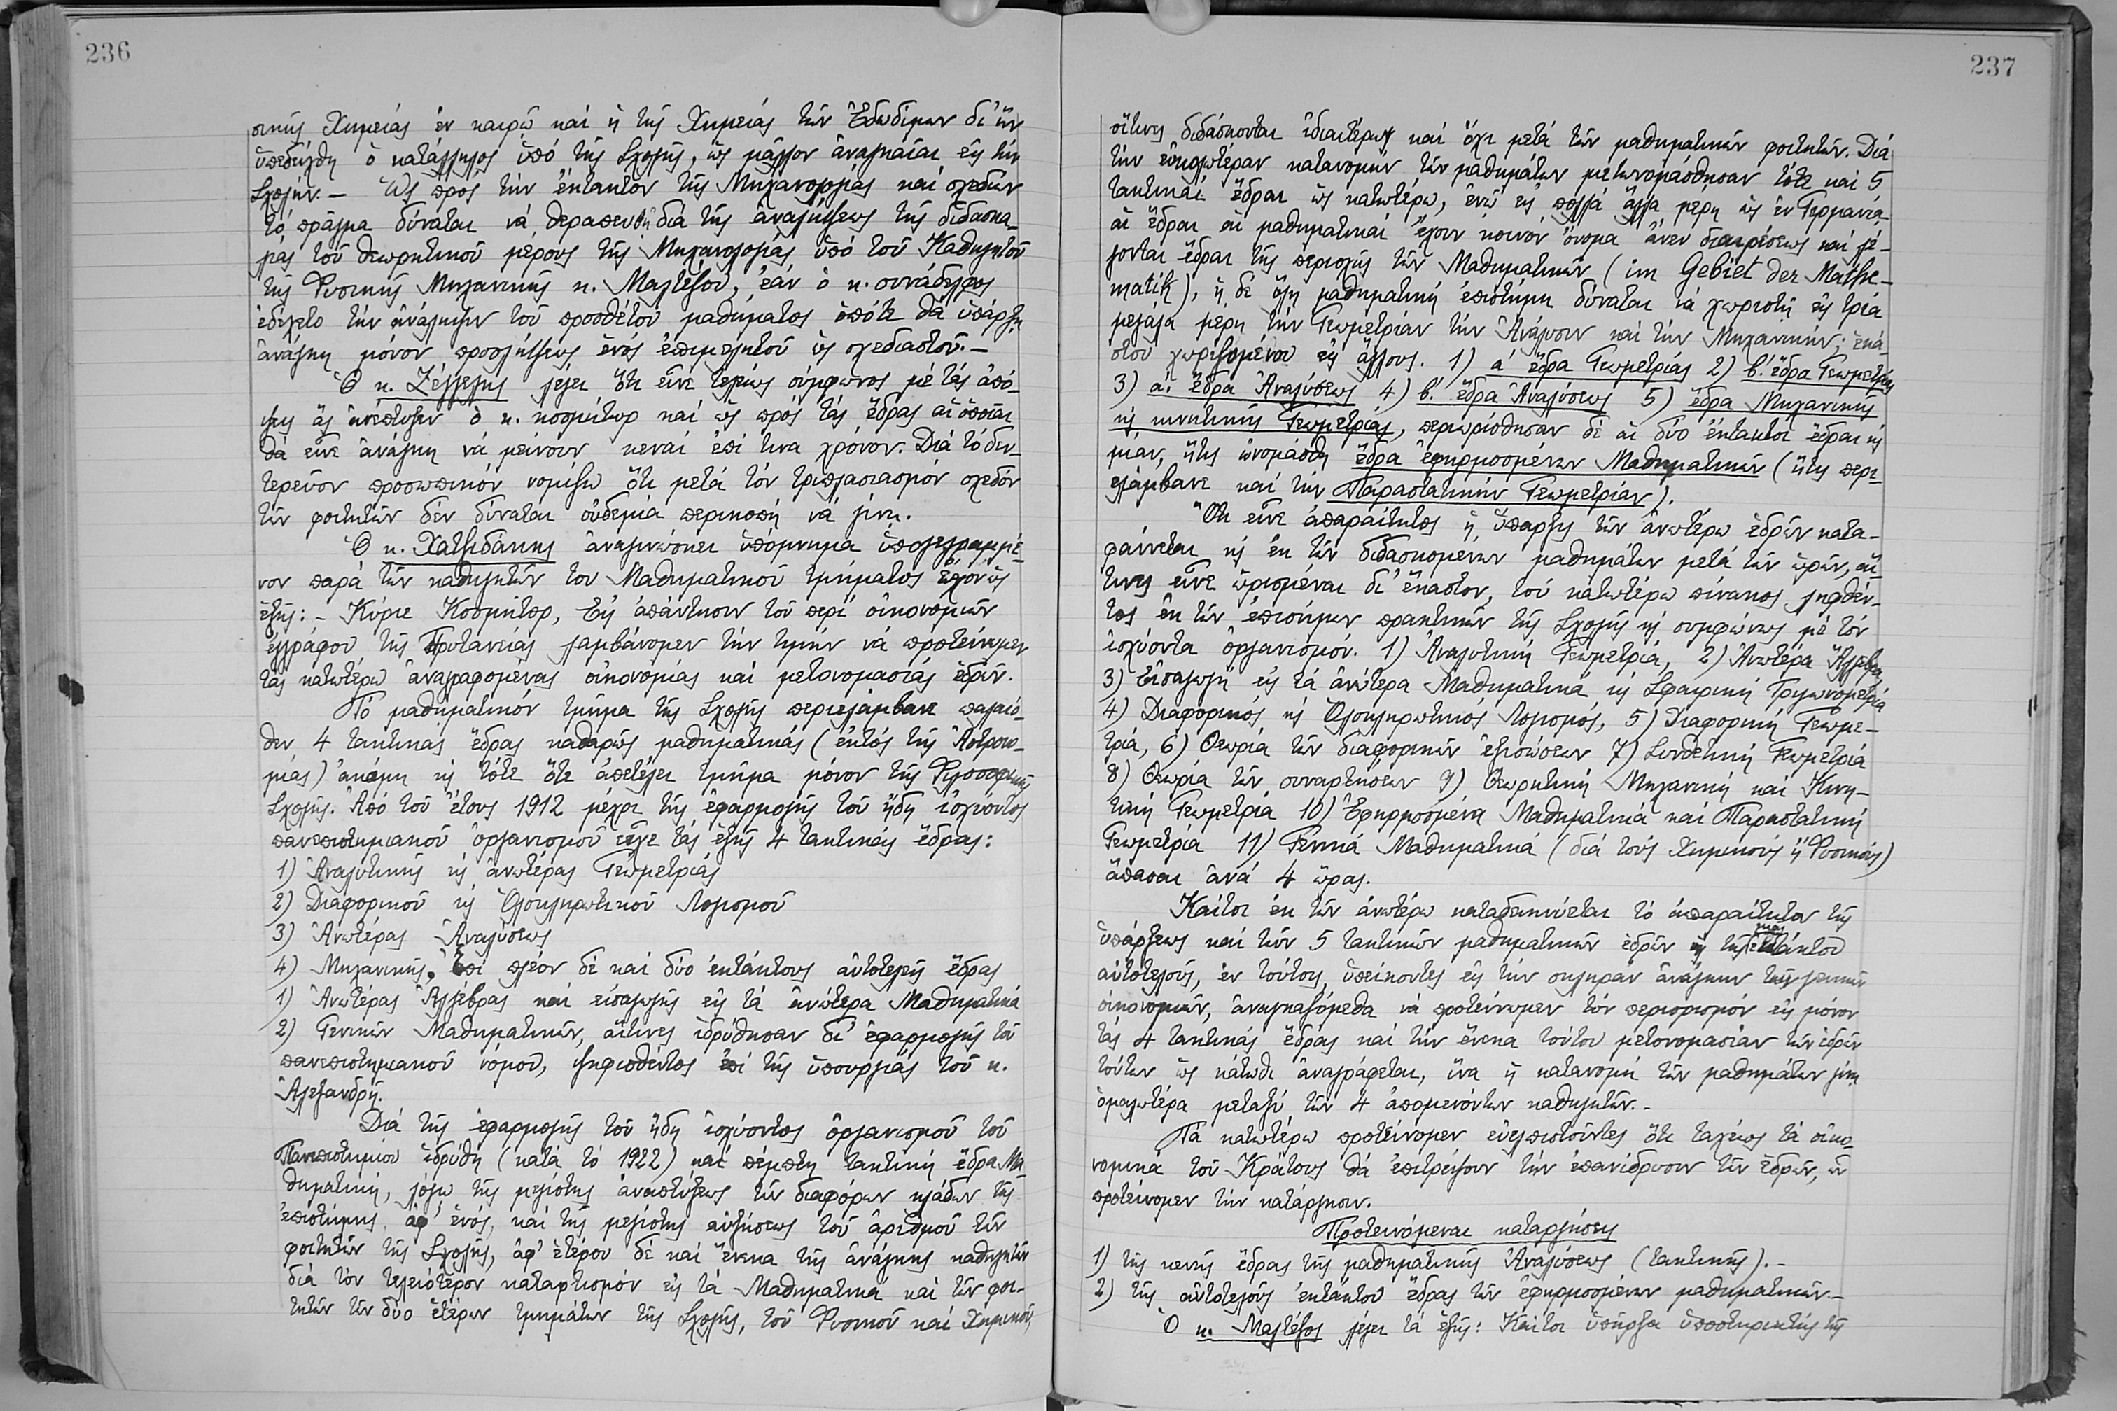 236
σικῆς Χημείας ἐν καιρῷ καὶ ἡ τῆς Χημείας τῶν Ἐδωδίμων δι' ἣν
ὑπεδείχθη ὁ κατάλληλος ὑπὸ τῆς Σχολῆς, ὡς μᾶλλον ἀναγκαῖαι εἰς τὴν
Σχολήν.– Ὡς πρὸς τὴν ἔκτακτον τῆς Μηχανολογίας καὶ σχεδίων
τὸ πρᾶγμα δύναται νὰ θεραπευθῇ διὰ τῆς ἀναλήψεως τῆς διδασκα-
λίας τοῦ θεωρητικοῦ μέρους τῆς Μηχανολογίας ὑπὸ τοῦ Καθηγητοῦ
τῆς Φυσικῆς Μηχανικῆς κ. Μαλτέζου, ἐὰν ὁ κ. συνάδελφος
ἐδέχετο τὴν ἀνάληψιν τοῦ προσθέτου μαθήματος ὁπότε θὰ ὑπάρξῃ
ἀνάγκη μόνον προσλήψεως ἑνὸς ἐπιμελητοῦ ὡς σχεδιαστοῦ.–
Ὁ κ. Ζέγγελης λέγει ὅτι εἶνε τελείως σύμφωνος μὲ τὰς ἀπό-
ψεις ἃς ἀνέπτυξεν ὁ κ. κοσμήτωρ καὶ ὡς πρὸς τὰς ἕδρας αἱ ὁποῖαι
θὰ εἶνε ἀνάγκη νὰ μείνουν κεναὶ ἐπί τινα χρόνον. Διὰ τὸ δευ-
τερεῦον προσωπικὸν νομίζω ὅτι μετὰ τὸν τριπλασιασμὸν σχεδὸν
τῶν φοιτητῶν δὲν δύναται οὐδεμία περικοπὴ νὰ γίνῃ.
Ὁ κ. Χατζιδάκης ἀναγινώσκει ὑπόμνημα ὑπογεγραμμέ-
νον παρὰ τῶν καθηγητῶν τοῦ Μαθηματικοῦ τμήματος ἔχον ὡς
ἑξῆς:– Κύριε Κοσμῆτορ, Εἰς ἀπάντησιν τοῦ περὶ οἰκονομιῶν
ἐγγράφου τῆς Πρυτανείας λαμβάνομεν τὴν τιμὴν νὰ προτείνωμεν
τὰς κατωτέρω ἀναγραφομένας οἰκονομίας καὶ μετονομασίας ἑδρῶν.
Τὸ μαθηματικὸν τμῆμα τῆς Σχολῆς περιελάμβανε παλαιό-
θεν 4 τακτικὰς ἕδρας καθαρῶς μαθηματικὰς (ἐκτὸς τῆς Ἀστρονο-
μίας) ἀκόμη κὶ τότε ὅτε ἀπετέλει τμῆμα μόνον τῆς Φιλοσοφικῆς
Σχολῆς. Ἀπὸ τοῦ ἔτους 1912 μέχρι τῆς ἐφαρμογῆς τοῦ ἤδη ἰσχύοντος
πανεπιστημιακοῦ ὀργανισμοῦ εἶχε τὰς ἑξῆς 4 τακτικὰς ἕδρας:
1) Ἀναλυτικῆς κὶ ἀνωτέρας Γεωμετρίας
2) Διαφορικοῦ κὶ Ὁλοκληρωτικοῦ Λογισμοῦ
3) Ἀνωτέρας Ἀναλύσεως
4) Μηχανικῆς, ἐπὶ πλέον δὲ καὶ δύο ἐκτάκτους αὐτοτελεῖς ἕδρας
1) Ἀνωτέρας Ἀλγέβρας καὶ εἰσαγωγῆς εἰς τὰ ἀνώτερα Μαθηματικὰ
2) Γενικῶν Μαθηματικῶν, αἵτινες ἱδρύθησαν δι' ἐφαρμογῆς τοῦ
πανεπιστημιακοῦ νόμου, ψηφισθέντος ἐπὶ τῆς ὑπουργίας τοῦ κ.
Ἀλεξανδρῆ.
Διὰ τῆς ἐφαρμογῆς τοῦ ἤδη ἰσχύοντος ὀργανισμοῦ τοῦ
Πανεπιστημίου ἱδρύθη (κατὰ τὸ 1922) καὶ πέμπτη τακτικὴ ἕδρα Μα-
θηματικὴ, λόγῳ τῆς μεγίστης ἀναπτύξεως τῶν διαφόρων κλάδων τῆς
ἐπιστήμης ἀφ' ἑνός, καὶ τῆς μεγίστης αὐξήσεως τοῦ ἀριθμοῦ τῶν
φοιτητῶν τῆς Σχολῆς, ἀφ' ἑτέρου δὲ καὶ ἕνεκα τῆς ἀνάγκης καθηγητῶν
διὰ τὸν τελειότερον καταρτισμὸν εἰς τὰ Μαθηματικὰ καὶ τῶν φοι-
τητῶν τῶν δύο ἑτέρων τμημάτων τῆς Σχολῆς, τοῦ Φυσικοῦ καὶ Χημικοῦ,
237
οἵτινες διδάσκονται ἰδιαιτέρως καὶ ὄχι μετὰ τῶν μαθηματικῶν φοιτητῶν. Διὰ
τὴν εὐκολωτέραν κατανομὴν τῶν μαθημάτων μετωνομάσθησαν τότε καὶ 5
τακτικαὶ ἕδραι ὡς κατωτέρω, ἐνῷ εἰς πολλὰ ἄλλα μέρη ὡς ἐν Γερμανίᾳ
αἱ ἕδραι αἱ μαθηματικαὶ ἔχουν κοινὸν ὄνομα ἄνευ διαιρέσεως καὶ λέ-
γονται ἕδραι τῆς περιοχῆς τῶν Μαθηματικῶν (im Gebiet der Mathe-
matik), ἡ δὲ ὅλη μαθηματικὴ ἐπιστήμη δύναται νὰ χωριστῇ εἰς τρία
μεγάλα μέρη τὴν Γεωμετρίαν τὴν Ἀνάλυσιν καὶ τὴν Μηχανικήν, ἑκά-
στου χωριζομένου εἰς ἄλλους. 1) α' ἕδρα Γεωμετρίας 2) β'. ἕδρα Γεωμετρίας
3) α'. ἕδρα Ἀναλύσεως 4) β'. ἕδρα Ἀναλύσεως 5) ἕδρα Μηχανικῆς
κὶ κινητικῆς Γεωμετρίας, περιωρίσθησαν δὲ αἱ δύο ἔκτακτοι ἕδραι εἰς
μίαν, ἥτις ὠνομάσθη ἕδρα ἐφηρμοσμένων Μαθηματικῶν (ἥτις περι-
ελάμβανε καὶ τὴν Παραστατικὴν Γεωμετρίαν).
Ὅτι εἶνε ἀπαραίτητος ἡ ὕπαρξις τῶν ἀνωτέρω ἑδρῶν κατα-
φαίνεται κὶ ἐκ τῶν διδασκομένων μαθημάτων μετὰ τῶν ὡρῶν, αἵ-
τινες εἶνε ὡρισμέναι δι' ἕκαστον, τοῦ κατωτέρω πίνακος ληφθέν-
τος ἐκ τῶν ἐπισήμων πρακτικῶν τῆς Σχολῆς κὶ συμφώνως μὲ τὸν
ἰσχύοντα ὀργανισμόν. 1) Ἀναλυτικὴ Γεωμετρία, 2) Ἀνωτέρα Ἄλγεβρα
3) Εἰσαγωγὴ εἰς τὰ ἀνώτερα Μαθηματικὰ κὶ Σφαιρικὴ Τριγωνομετρία
4) Διαφορικὸς κὶ Ὁλοκληρωτικὸς Λογισμός, 5) Διαφορικὴ Γεωμε-
τρία, 6) Θεωρία τῶν διαφορικῶν ἐξισώσεων 7) Συνθετικὴ Γεωμετρία
8) Θεωρία τῶν συναρτήσεων 9) Θεωρητικὴ Μηχανικὴ καὶ Κινη-
τικὴ Γεωμετρία 10) Ἐφηρμοσμένα Μαθηματικὰ καὶ Παραστατικὴ
Γεωμετρία 11) Γενικὰ Μαθηματικὰ (διὰ τοὺς Χημικοὺς ἢ Φυσικούς)
ἅπασαι ἀνὰ 4 ὥρας.
Καίτοι ἐκ τῶν ἀνωτέρω καταδεικνύεται τὸ ἀπαραίτητον τῆς
ὑπάρξεως καὶ τῶν 5 τακτικῶν μαθηματικῶν ἑδρῶν κὶ τῆς μιᾶς ἐκτάκτου
αὐτοτελοῦς, ἐν τούτοις, ὑπείκοντες εἰς τὴν σκληρὰν ἀνάγκην τῶν γενικῶν
οἰκονομιῶν, ἀναγκαζόμεθα νὰ προτείνωμεν τὸν περιορισμὸν εἰς μόνον
τὰς 4 τακτικὰς ἕδρας καὶ τὴν ἕνεκα τούτου μετονομασίαν τῶν ἑδρῶν
τούτων ὡς κάτωθι ἀναγράφεται, ἵνα ἡ κατανομὴ τῶν μαθημάτων γίνῃ
ὁμαλωτέρα μεταξὺ τῶν 4 ἀπομενόντων καθηγητῶν.–
Τὰ κατωτέρω προτείνομεν εὐελπιστοῦντες ὅτι ταχέως τὰ οἰκο-
νομικὰ τοῦ Κράτους θὰ ἐπιτρέψουν τὴν ἐπανίδρυσιν τῶν ἑδρῶν, ὧν
προτείνομεν τὴν κατάργησιν.
Προτεινόμεναι καταργήσεις
1) τῆς κενῆς ἕδρας τῆς μαθηματικῆς Ἀναλύσεως (τακτικῆς).–
2) τῆς αὐτοτελοῦς ἐκτάκτου ἕδρας τῶν ἐφηρμοσμένων μαθηματικῶν–
Ὁ κ. Μαλτέζος λέγει τὰ ἑξῆς: Καίτοι ὑπῆρξα ὑποστηρικτὴς τῆς